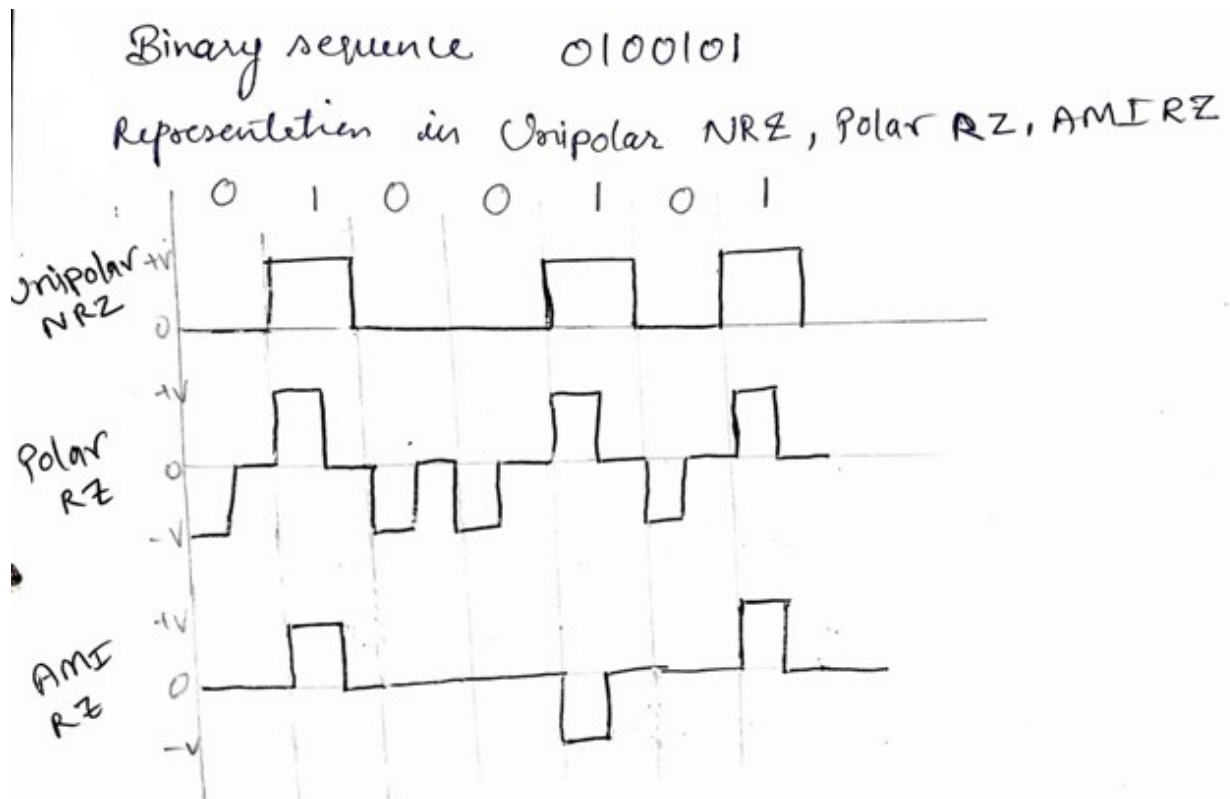 Binary sequence 0100101
Representation in Unipolar NRZ, Polar RZ, AMI RZ
0 1 0 0 1 0 1
Unipolar +V
NRZ
0
+V
Polar
0
RZ
-V
+V
AMI
0
RZ
-V